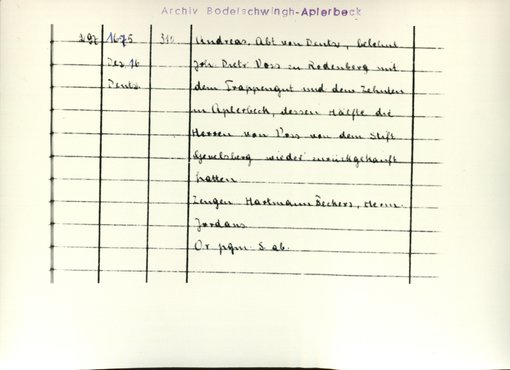 Archiv Bodelschwingh-Aplerbeck
292 1675 312 Andreas, Abt von Deutz, belehnt
Dez 16 Joh Dietr Voss zu Rodenberg mit
Deutz dem Trappengut und dem Zehnten
in Aplerbeck, dessen Hälfte die
Herren von Voss von dem Stift
Gevelsberg wieder zurückgekauft
hatten
Zeugen Hartmann Beckers, Herm.
Jordans
Or. pgm. S. ab.